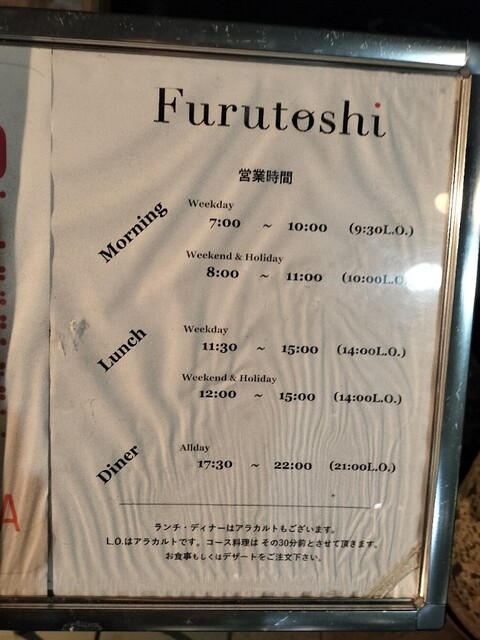 Furutoshi
営業時間
Morning
Weekday
7:00 ~ 10:00 (9:30L.O.)
Weekend & Holiday
8:00 ~ 11:00 (10:00L.O.)
Lunch
Weekday
11:30 ~ 15:00 (14:00L.O.)
Weekend & Holiday
12:00 ~ 15:00 (14:00L.O.)
Diner
Allday
17:30 ~ 22:00 (21:00L.O.)
ランチ・ディナーはアラカルトもございます。
L.O.はアラカルトです。コース料理は その30分前とさせて頂きます。
お食事もしくはデザートをご注文下さい。
A